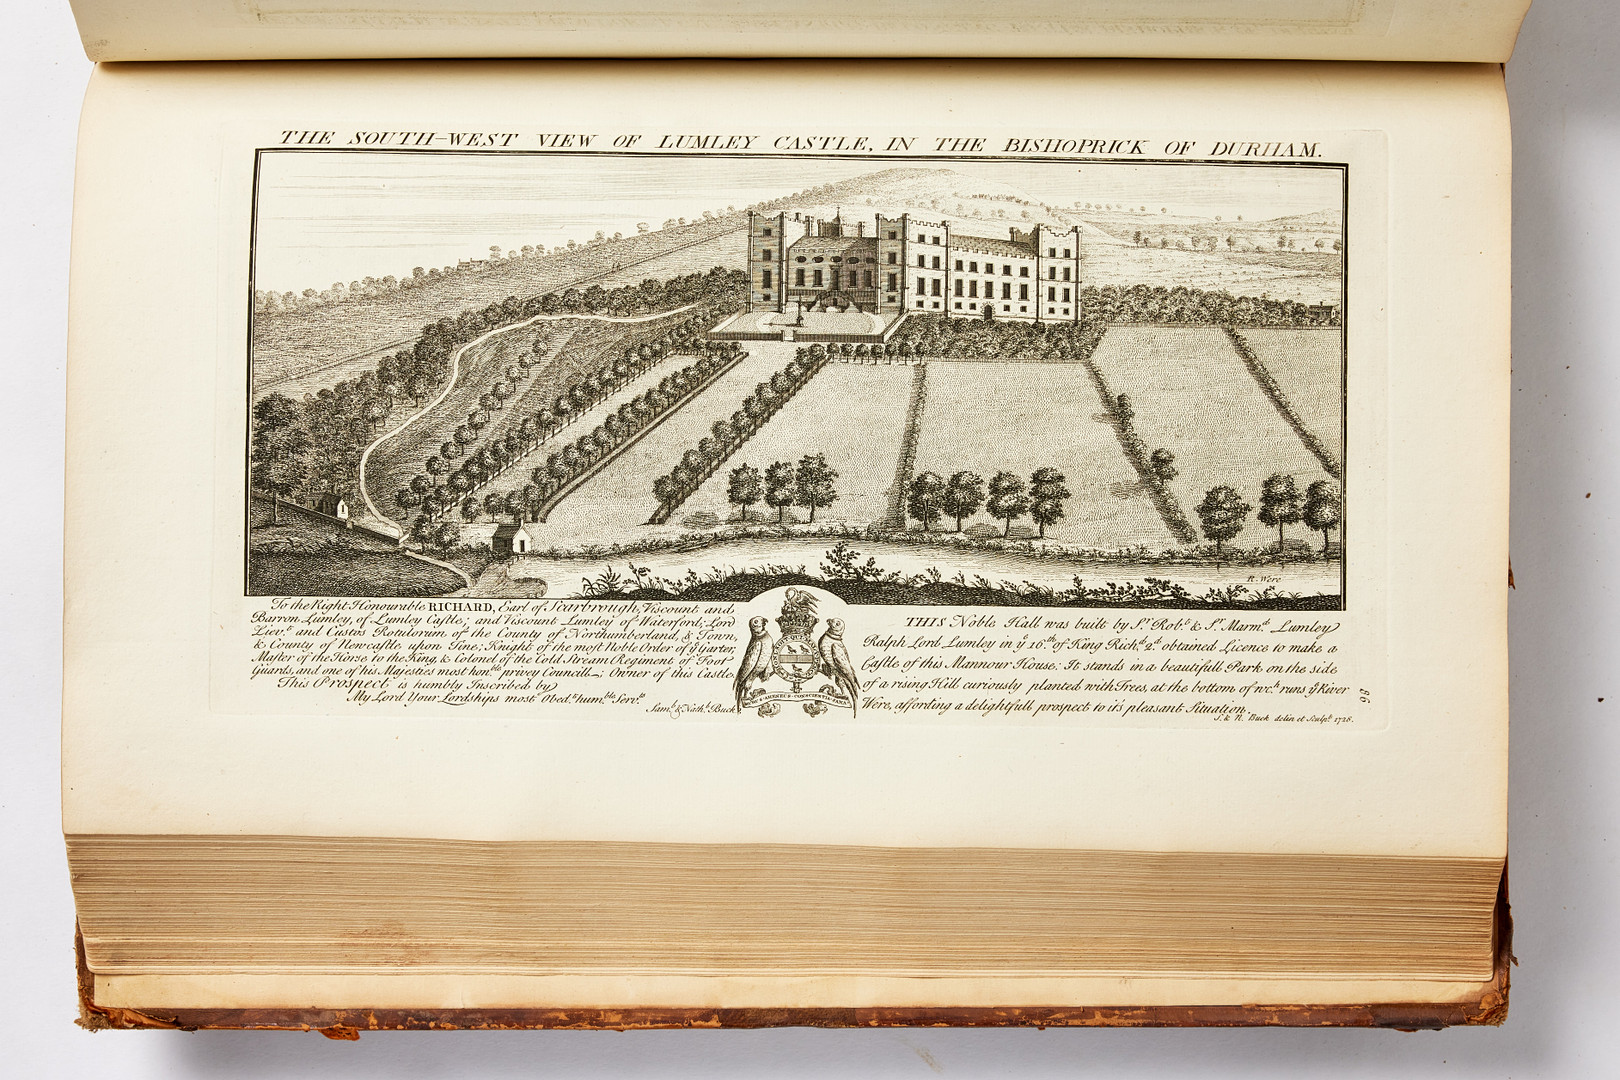 THE SOUTH-WEST VIEW OF LUMLEY CASTLE, IN THE BISHOPRICK OF DURHAM.
R. Were
To the Right Honourable RICHARD, Earl of Scarbrough, Viscount and
Barron Lumley, of Lumley Castle; and Viscount Lumley of Waterford; Lord
Lievt. and Custus Rotulorum of the County of Northumberland, & Town,
& County of Newcastle upon Tine; Knight of the most Noble Order of ye Garter,
Master of the Horse to the King, & Colonel of the Cold Stream Regiment of Foot
Guards, and one of his Majesties most honble privey Councill; Owner of this Castle.
This Prospect is humbly Inscribed by
My Lord Your Lordships most Obedt. humble Servts
Saml. & Nathl. Buck
CONSCIENTIA
THIS Noble Hall was built by Sr. Robt. & Sr. Marmd. Lumley
Ralph Lord Lumley in ye 16th. of King Richd. 2d. obtained Licence to make a
Castle of this Mannour House: It stands in a beautifull Park on the side
of a rising Hill curiously planted with Trees, at the bottom of wch. runs ye River
Were, affording a delightfull prospect to it's pleasant Situation.
S. & N. Buck delin et Sculpt. 1728.
86